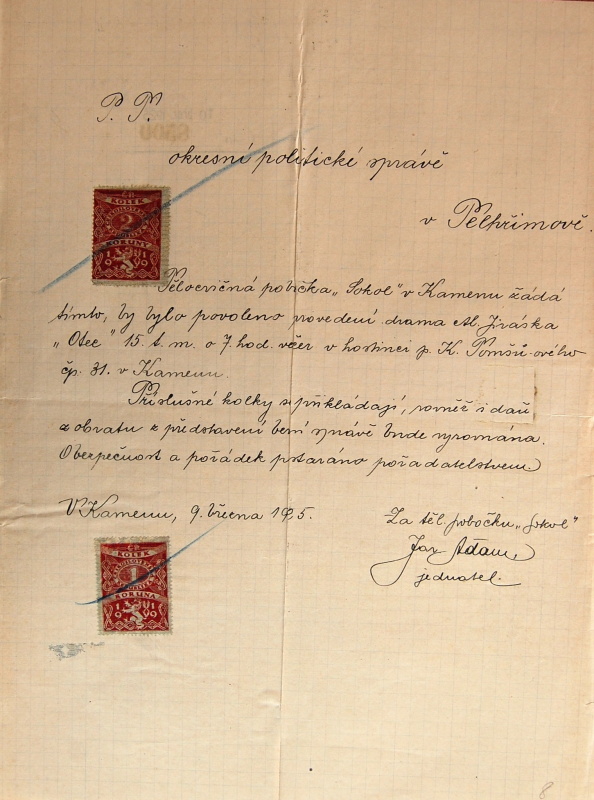 P. T.
okresní politické správě
v Pelhřimově.
ČR
KOLEK
2
KORUNY
1919
Tělocvičná pobočka „Sokol" v Kamenu žádá
tímto, by bylo povoleno provedení drama Al. Jiráska
„Otec" 15. t. m. o 7. hod. večer v hostinci p. K. Tomšů-ového
čp. 31. v Kamenu.
Příslušné kolky se přikládají, rovněž i daň
z obratu z představení berní správě bude vyrovnána.
Bezpečnost a pořádek postaráno pořadatelstvem.
V Kamenu, 9. března 1925.
Za těl. pobočku „Sokol"
Jar. Adam,
jednatel.
ČR
KOLEK
1
KORUNA
1919
8